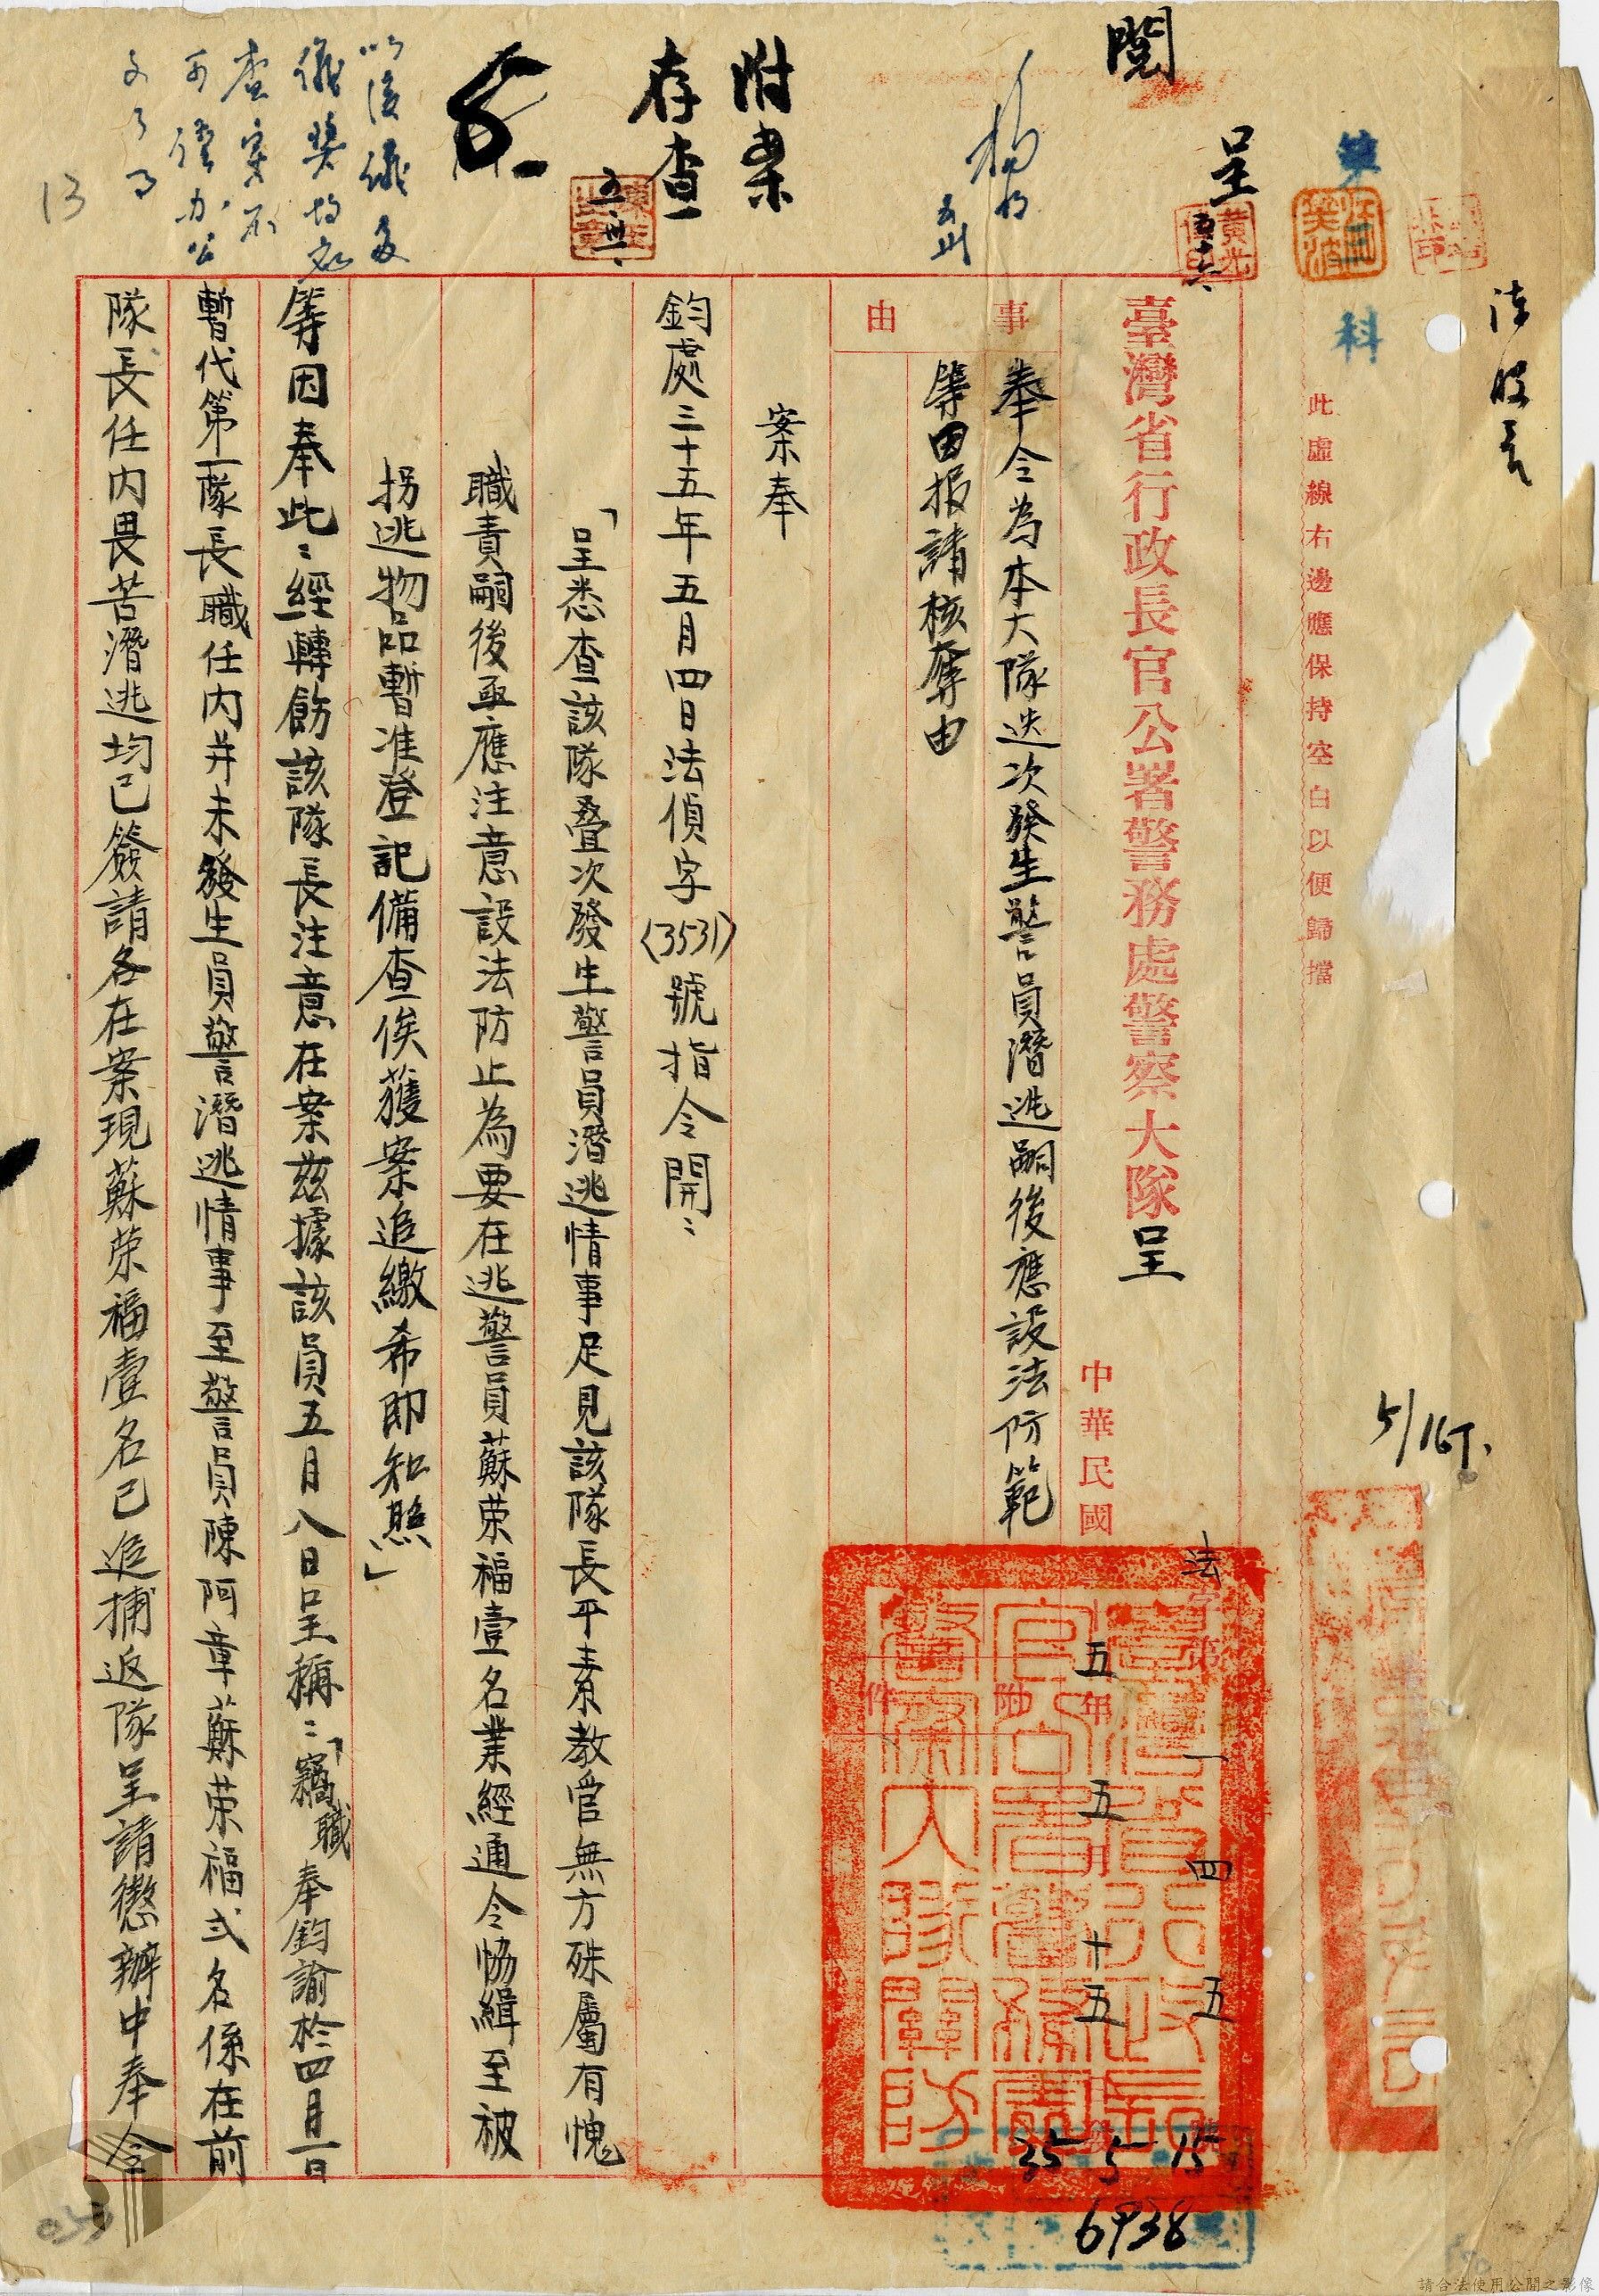 此虛線右邊應保持空白以便歸檔
第 科
閱
呈
臺灣省行政長官公署警務處警察大隊呈
中華民國 五年五月十五日
法字第一四五號
5/16
事由
奉令為本大隊迭次發生警員潛逃嗣後應設法防範
等因報請核奪由
附件
案奉
鈞處三十五年五月四日法偵字(3531)號指令開:
「呈悉查該隊叠次發生警員潛逃情事足見該隊長平素教管無方殊屬有愧
職責嗣後亟應注意設法防止為要在逃警員蘇荣福壹名業經通令協緝至被
拐逃物品暫准登記備查俟獲案追繳希即知照」
等因奉此:經轉飭該隊長注意在案茲據該員五月八日呈稱:「竊職奉鈞諭於四月一日
暫代第一隊長職任内并未發生員警潛逃情事至警員陳阿章蘇荣福弍名係在前
隊長任内畏苦潛逃均已簽請各在案現蘇荣福壹名已追捕返隊呈請懲辦中奉令
附案
存查
五.卅一.
35 5 15
6938
臺灣省行政長官公署警務處警察大隊關防
13
請合法使用公開之影像